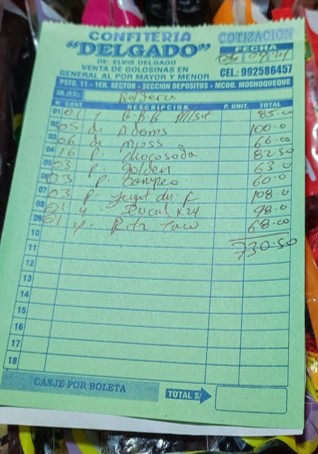 CONFITERIA COTIZACION
"DELGADO" FECHA
DE: ELVIS DELGADO
VENTA DE GOLOSINAS EN
GENERAL AL POR MAYOR Y MENOR CEL: 992586457
PSTO. 11 - 1ER. SECTOR - SECCION DEPOSITOS - MCDO. MOSHOQUEQUE
SR.(ES):
N° CANT. DESCRIPCION P. UNIT. TOTAL
01 01 85.00
02 05 Adams 100.0
03 06 moss 66.00
04 16 P. chocosoda 82.50
05 03 P. golden 63.0
06 03 P. 60.0
07 03 P. 108.0
08 01 x24 98.0
09 01 Ritz taco 68.00
10 730.50
11
12
13
14
15
16
17
18
CANJE POR BOLETA TOTAL S/